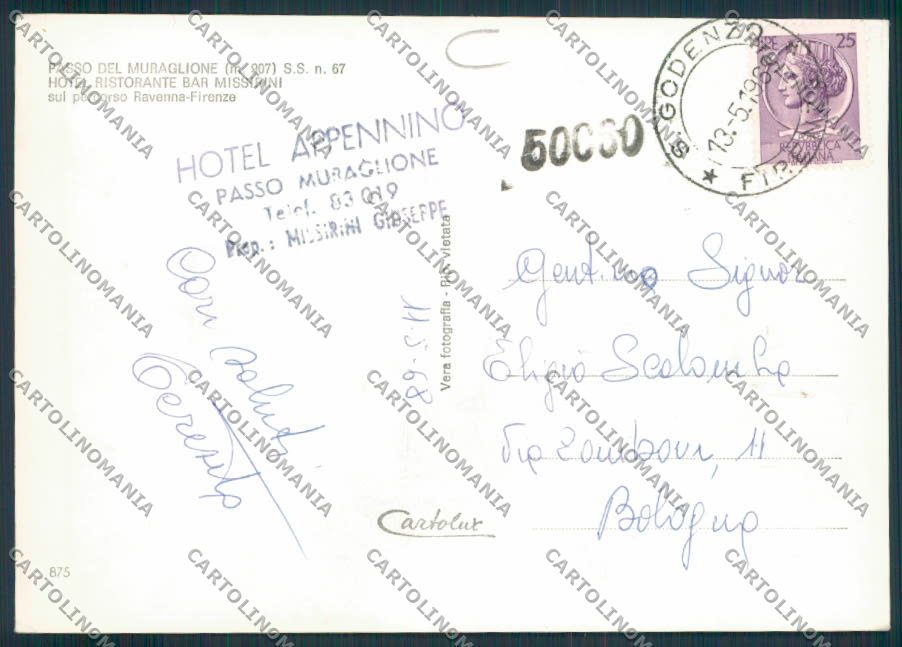 PASSO DEL MURAGLIONE (m. 907) S.S. n. 67
HOTEL RISTORANTE BAR MISSIRINI
sul percorso Ravenna-Firenze
HOTEL APPENNINO
PASSO MURAGLIONE
Telef. 83 019
Prop.: MISSIRINI GIUSEPPE
50060
S. GODENZO
13.-5.196
25
REPUBBLICA
ITALIANA
Vera fotografia - Rip. vietata
11-5-68
Con saluti
Gent.mo Signor
Eligio
Via Zamboni, 11
Bologna
Cartolux
875
CARTOLINOMANIA